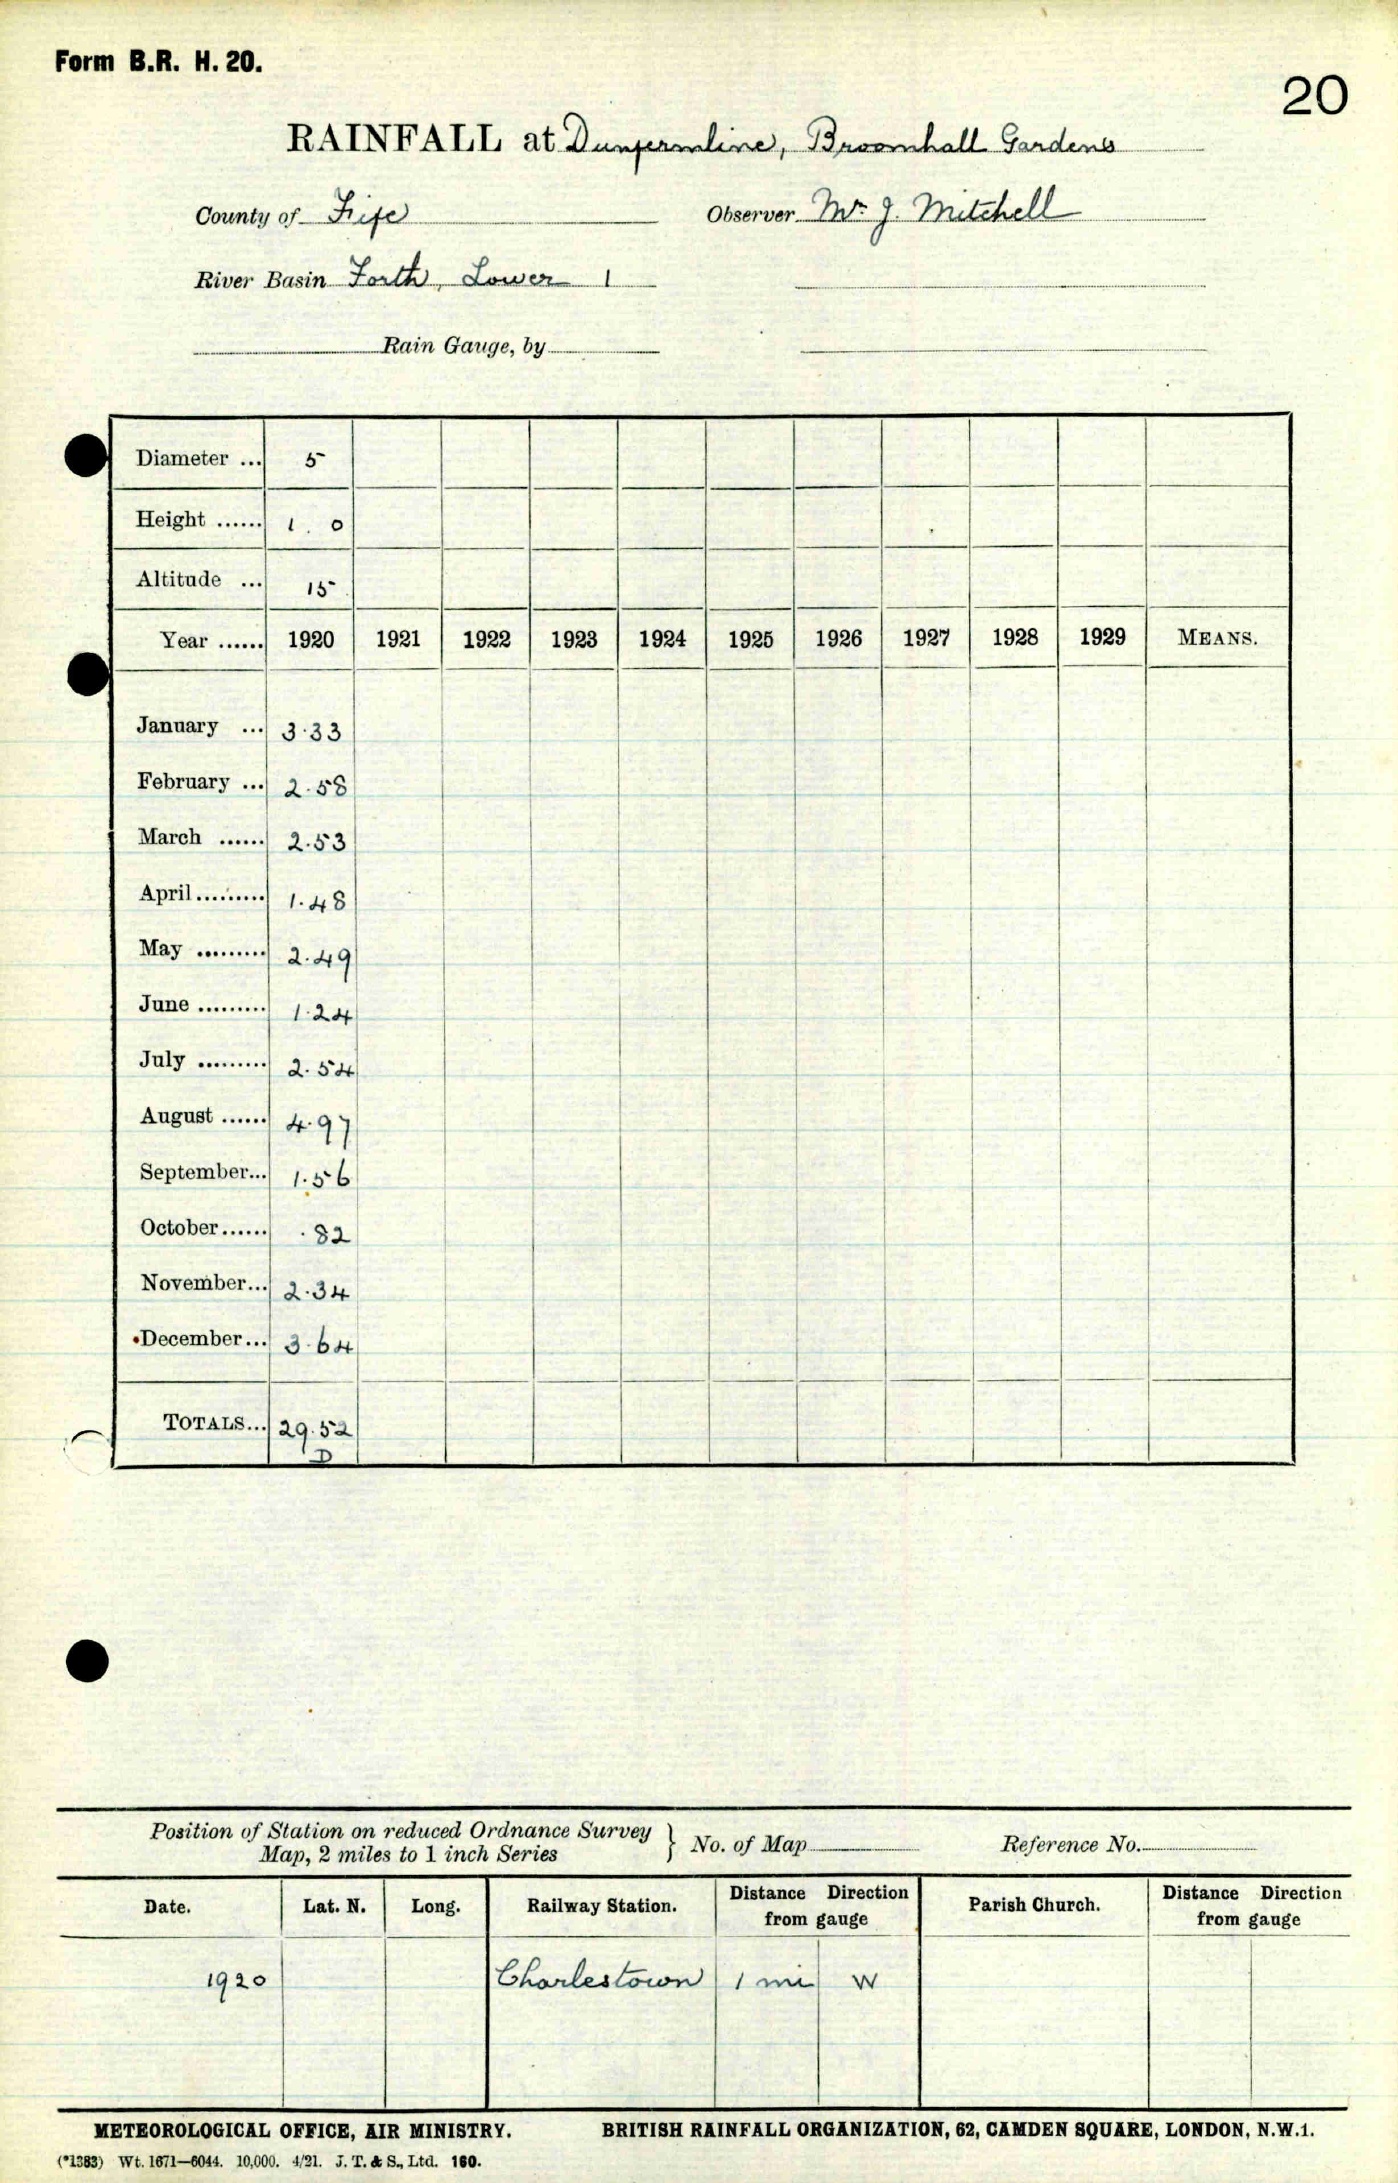 Form B.R. H. 20.
20
RAINFALL at Dunfermline, Broomhall Gardens
County of Fife Observer Mr. J. Mitchell
River Basin Forth, Lower 1
Rain Gauge, by
Diameter ... 5
Height ...... 1 . 0
Altitude ... 15
Year ...... 1920 1921 1922 1923 1924 1925 1926 1927 1928 1929 MEANS.
January ... 3.33
February ... 2.58
March ...... 2.53
April ......... 1.48
May ......... 2.49
June ......... 1.24
July ......... 2.54
August ...... 4.97
September... 1.56
October...... .82
November... 2.34
December... 3.64
TOTALS... 29.52
D
Position of Station on reduced Ordnance Survey
Map, 2 miles to 1 inch Series } No. of Map Reference No.
Date. Lat. N. Long. Railway Station. Distance Direction from gauge Parish Church. Distance Direction from gauge
1920 Charlestown 1 mi W
METEOROLOGICAL OFFICE, AIR MINISTRY. BRITISH RAINFALL ORGANIZATION, 62, CAMDEN SQUARE, LONDON, N.W.1.
(*1383) Wt. 1671—6044. 10,000. 4/21. J. T. & S., Ltd. 160.